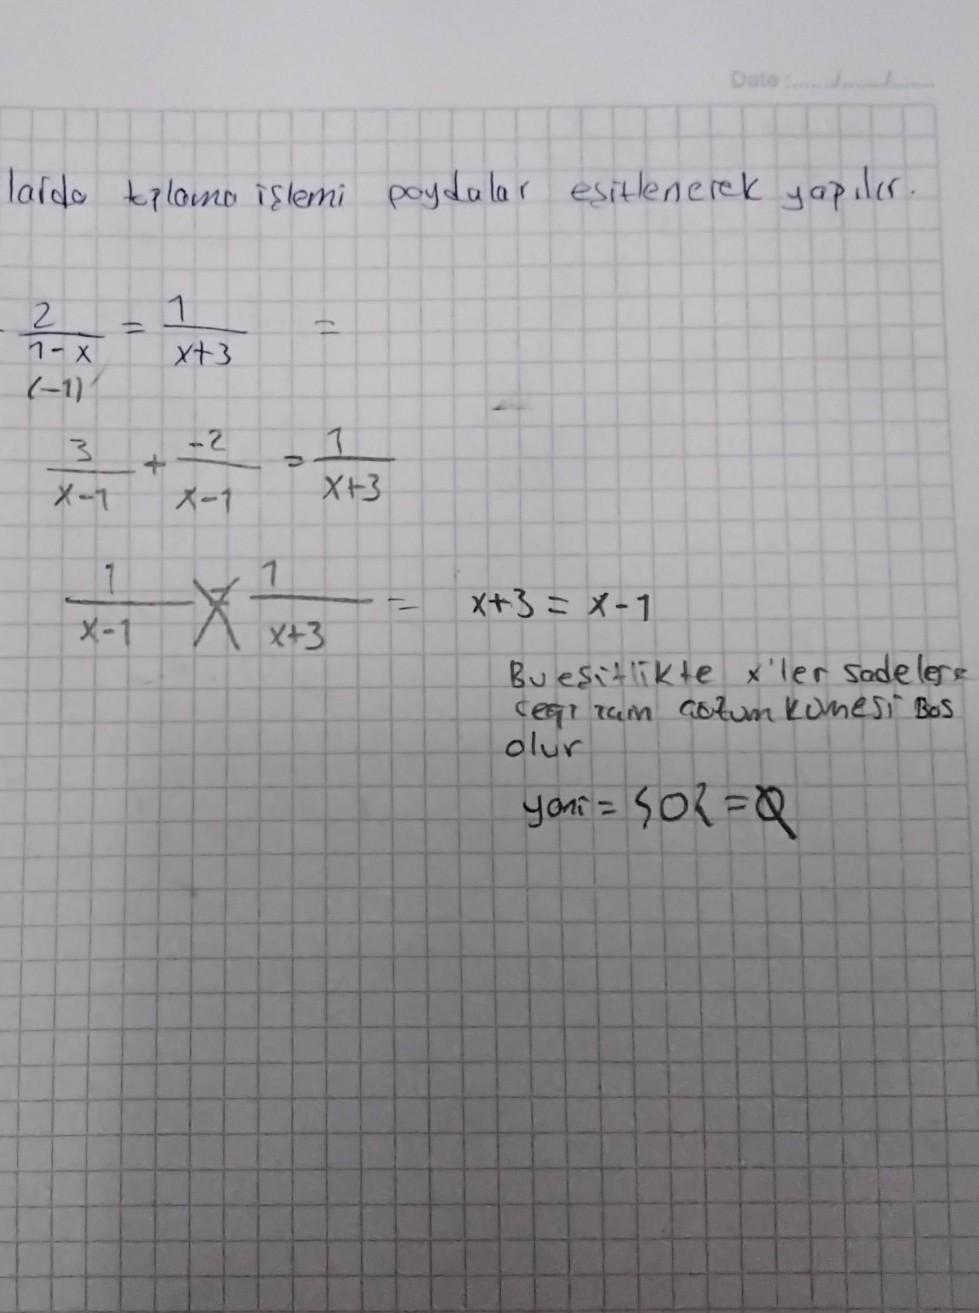 Date :....../....../......
larda toplama işlemi paydalar eşitlenerek yapılır.
2/1-x = 1/x+3 =
(-1)
3/x-1 + -2/x-1 = 1/x+3
1/x-1 = 1/x+3 = x+3 = x-1
Bu esitlikte x'ler sadeleşe
ceği için çözüm kümesi Bos
olur
yani = {0} = Ø